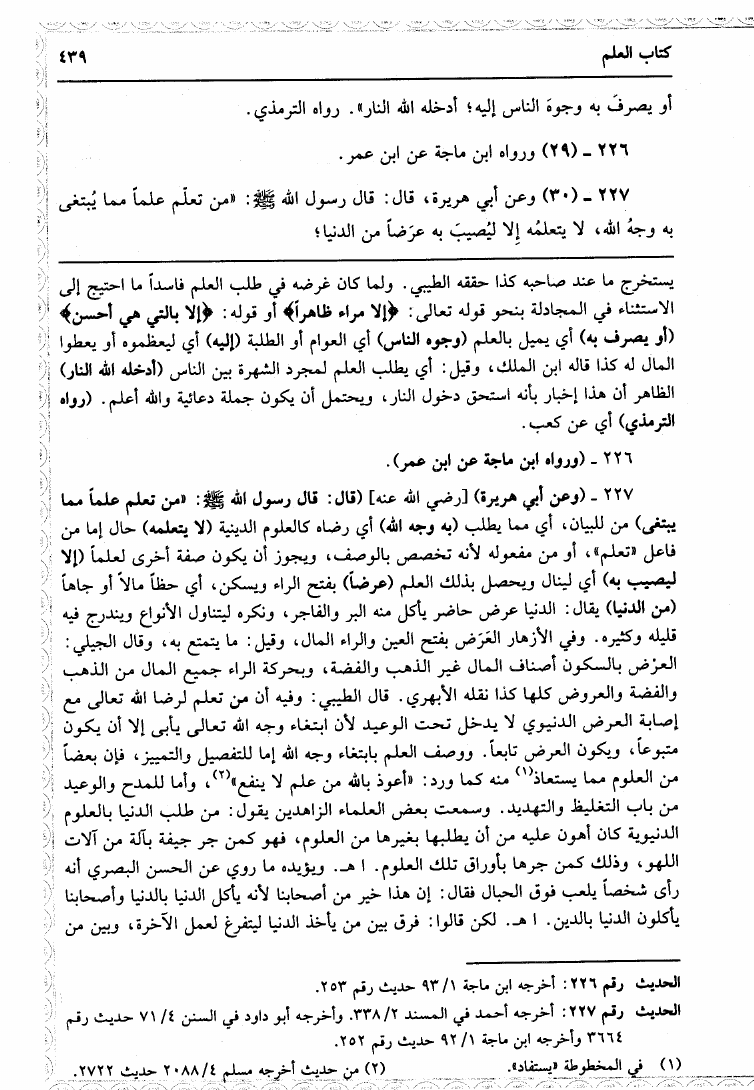 كتاب العلم
٤٣٩
أو يصرفَ به وجوهَ الناس إليه؛ أدخله الله النار». رواه الترمذي.
٢٢٦ ـ (٢٩) ورواه ابن ماجة عن ابن عمر.
٢٢٧ ـ (٣٠) وعن أبي هريرة، قال: قال رسول الله ﷺ: «من تعلّم علماً مما يُبتغى
به وجهُ الله، لا يتعلمُه إِلا ليُصيبَ به عرَضاً من الدنيا؛
يستخرج ما عند صاحبه كذا حققه الطيبي. ولما كان غرضه في طلب العلم فاسداً ما احتيج إلى
الاستثناء في المجادلة بنحو قوله تعالى: ﴿إلا مراء ظاهراً﴾ أو قوله: ﴿إلا بالتي هي أحسن﴾
(أو يصرف به) أي يميل بالعلم (وجوه الناس) أي العوام أو الطلبة (إليه) أي ليعظموه أو يعطوا
المال له كذا قاله ابن الملك، وقيل: أي يطلب العلم لمجرد الشهرة بين الناس (أدخله الله النار)
الظاهر أن هذا إخبار بأنه استحق دخول النار، ويحتمل أن يكون جملة دعائية والله أعلم. (رواه
الترمذي) أي عن كعب.
٢٢٦ ـ (ورواه ابن ماجة عن ابن عمر).
٢٢٧ ـ (وعن أبي هريرة) [رضي الله عنه] (قال: قال رسول الله ﷺ: «من تعلم علماً مما
يبتغى) من للبيان، أي مما يطلب (به وجه الله) أي رضاه كالعلوم الدينية (لا يتعلمه) حال إما من
فاعل «تعلم»، أو من مفعوله لأنه تخصص بالوصف، ويجوز أن يكون صفة أخرى لعلماً (إلا
ليصيب به) أي لينال ويحصل بذلك العلم (عرضاً) بفتح الراء ويسكن، أي حظاً مالاً أو جاهاً
(من الدنيا) يقال: الدنيا عرض حاضر يأكل منه البر والفاجر، ونكره ليتناول الأنواع ويندرج فيه
قليله وكثيره. وفي الأزهار العَرَض بفتح العين والراء المال، وقيل: ما يتمتع به، وقال الجيلي:
العرْض بالسكون أصناف المال غير الذهب والفضة، وبحركة الراء جميع المال من الذهب
والفضة والعروض كلها كذا نقله الأبهري. قال الطيبي: وفيه أن من تعلم لرضا الله تعالى مع
إصابة العرض الدنيوي لا يدخل تحت الوعيد لأن ابتغاء وجه الله تعالى يأبى إلا أن يكون
متبوعاً، ويكون العرض تابعاً. ووصف العلم بابتغاء وجه الله إما للتفصيل والتمييز، فإن بعضاً
من العلوم مما يستعاذ(١) منه كما ورد: «أعوذ بالله من علم لا ينفع»(٢)، وأما للمدح والوعيد
من باب التغليظ والتهديد. وسمعت بعض العلماء الزاهدين يقول: من طلب الدنيا بالعلوم
الدنيوية كان أهون عليه من أن يطلبها بغيرها من العلوم، فهو كمن جر جيفة بآلة من آلات
اللهو، وذلك كمن جرها بأوراق تلك العلوم. ا هـ. ويؤيده ما روي عن الحسن البصري أنه
رأى شخصاً يلعب فوق الحبال فقال: إن هذا خير من أصحابنا لأنه يأكل الدنيا بالدنيا وأصحابنا
يأكلون الدنيا بالدين. ا هـ. لكن قالوا: فرق بين من يأخذ الدنيا ليتفرغ لعمل الآخرة، وبين من
الحديث رقم ٢٢٦: أخرجه ابن ماجة ٩٣/١ حديث رقم ٢٥٣.
الحديث رقم ٢٢٧: أخرجه أحمد في المسند ٣٣٨/٢. وأخرجه أبو داود في السنن ٧١/٤ حديث رقم
٣٦٦٤ وأخرجه ابن ماجة ٩٢/١ حديث رقم ٢٥٢.
(١) في المخطوطة «يستفاد».
(٢) من حديث أخرجه مسلم ٢٠٨٨/٤ حديث ٢٧٢٢.